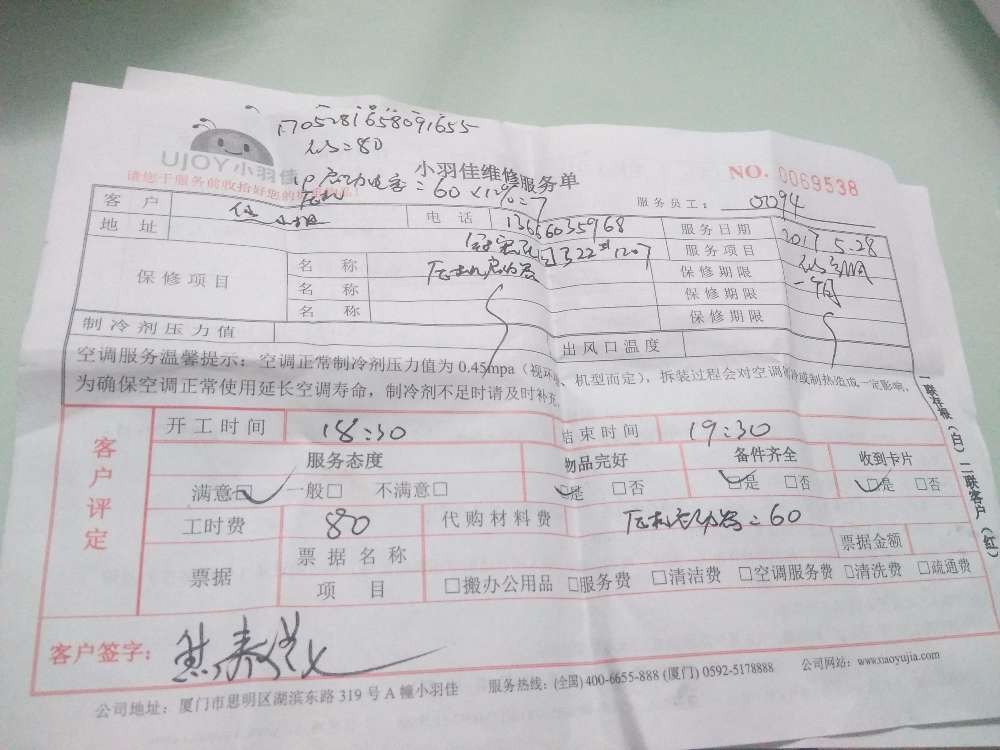 1705281658091655
=80
UJOY小羽佳
小羽佳维修服务单
NO. 0069538
请您于服务前收拾好您的
=60×12%=7
服务员工： 0094
客户
电话 13666035968
服务日期 2017 5.28
地址
322 1207
服务项目
保修项目
名称
保修期限
名称
保修期限 一个月
名称
保修期限
制冷剂压力值
出风口温度
空调服务温馨提示：空调正常制冷剂压力值为 0.45mpa（视环 、机型而定），拆装过程会对空调 或制热造成一定影响，
为确保空调正常使用延长空调寿命，制冷剂不足时请及时补充
一联存根（白）二联客户（红）
客户评定
开工时间 18:30
结束时间 19:30
服务态度
物品完好
备件齐全
收到卡片
满意□ 一般□ 不满意□
□是 □否
□是 □否
□是 □否
工时费 80
代购材料费 =60
票据
票据名称
票据金额
项目
□搬办公用品 □服务费 □清洁费 □空调服务费 □清洗费 □疏通费
客户签字：
公司地址：厦门市思明区湖滨东路 319 号 A 幢小羽佳 服务热线：(全国) 400-6655-888 (厦门) 0592-5178888 公司网站：www.xiaoyujia.com